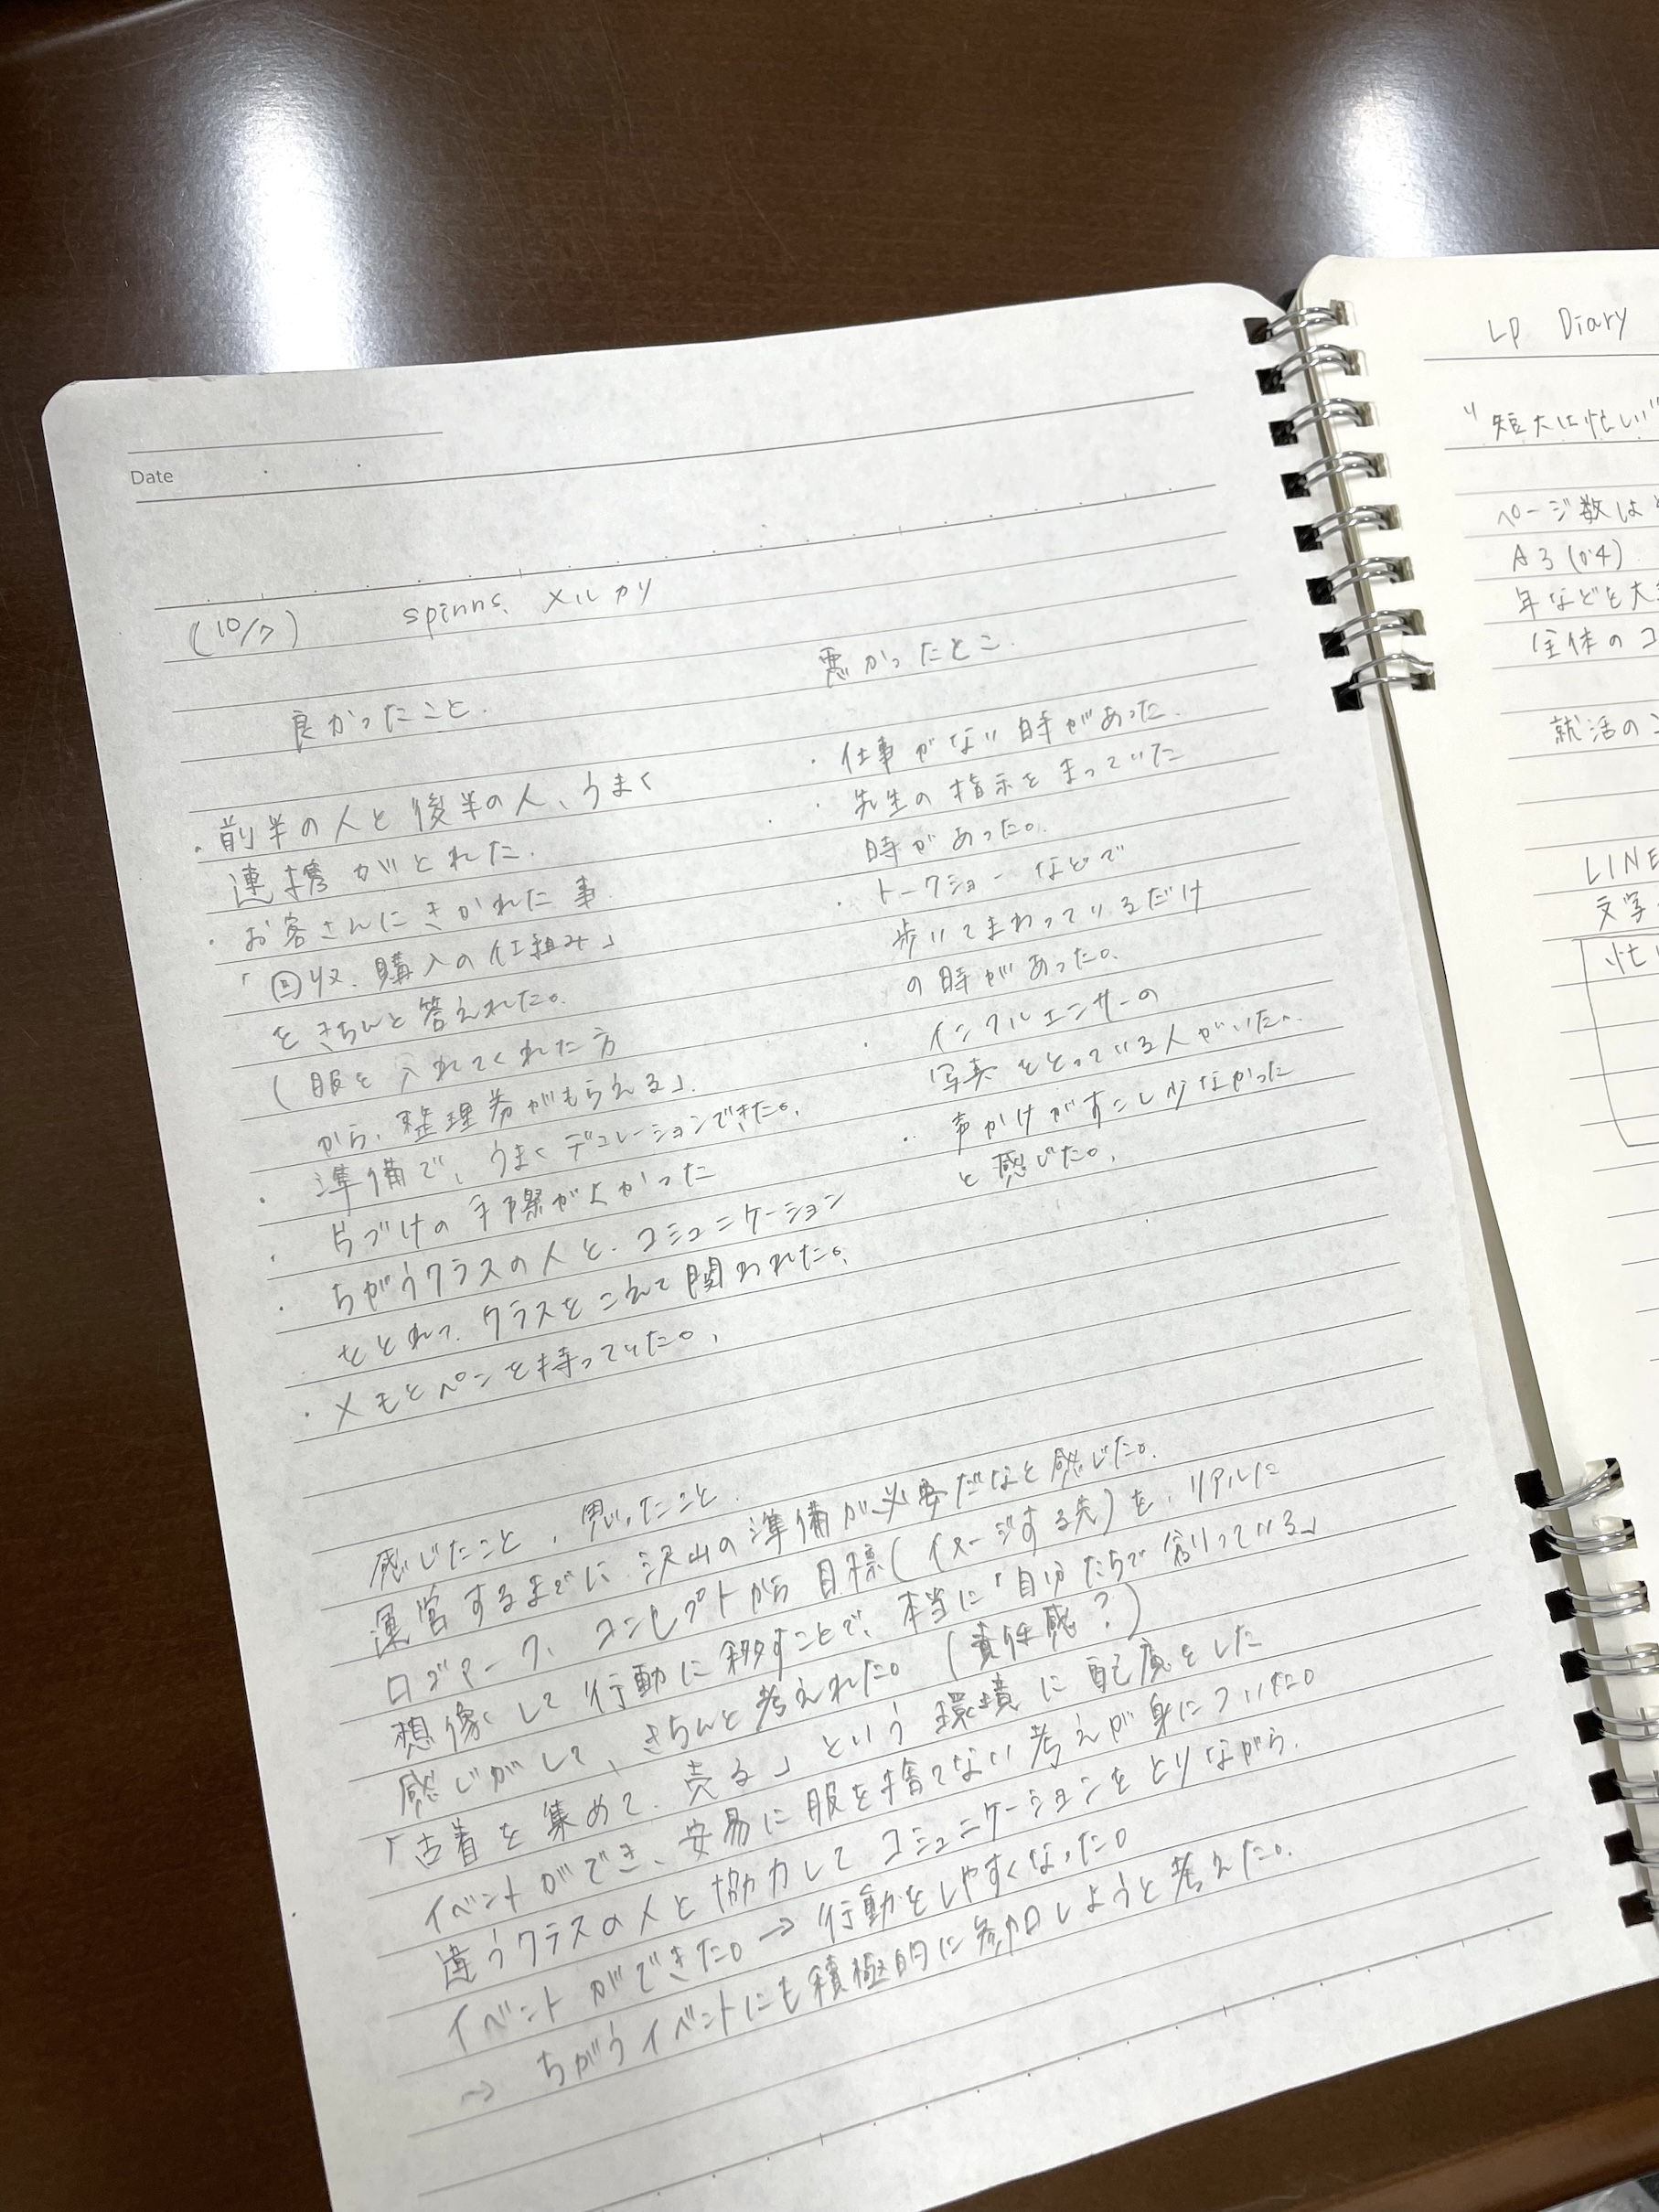 Date
(10/7) spinns、メルカリ
良かったこと.
・前半の人と後半の人、うまく
連携がとれた.
・お客さんにきかれた事
「回収.購入の仕組み」
をきちんと答えれた。
(服を入れてくれた方
から、整理券がもらえる」.
・準備で、うまくデコレーションできた。
・片づけの手際がよかった
・ちがうクラスの人と.コミュニケーション
をとれた.クラスをこえて関われた。
・メモとペンを持っていた。
悪かったとこ.
・仕事がない時があった.
・先生の指示をまっていた
時があった。
・トークショーなどで
歩いてまわっているだけ
の時があった。
・インフルエンサーの
写真をとっている人がいた。
・声かけがすこし少なかった
と感じた。
感じたこと、思ったこと.
運営するまでに.沢山の準備が必要だなと感じた。
ロゴマーク、コンセプトから目標(イメージする先)を、リアルに
想像して行動に移すことで、本当に「自分たちで創っている」
感じがして、きちんと考えれた。(責任感?)
「古着を集めて.売る」という環境に配慮をした
イベントができ、安易に服を捨てない考えが身についた。
違うクラスの人と協力してコミュニケーションをとりながら.
イベントができた。→行動をしやすくなった。
→ちがうイベントにも積極的に参加しようと考えた。
LP Diary
"短大は忙しい"
ページ数は
A3(か4)
年などを大
全体のコ
就活の
LINE
文字
忙